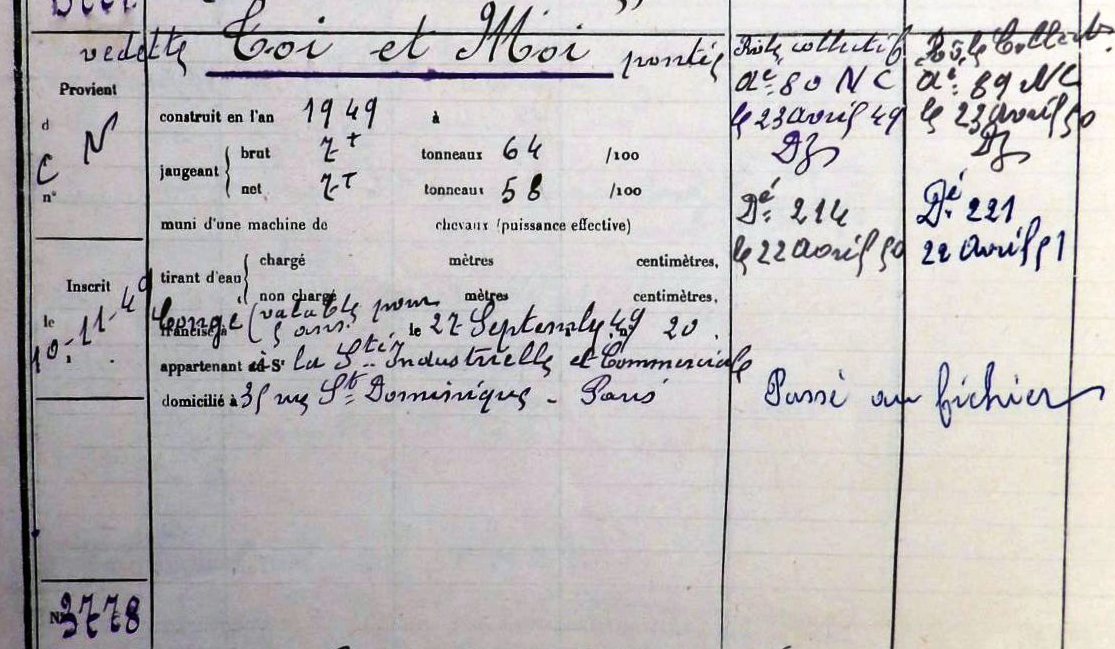 vedette Toi et Moi pontée
Provient
d
C N
n°
construit en l'an 1949 à
jaugeant { brut 7 T tonneaux 64 /100
net 7 T tonneaux 58 /100
muni d'une machine de chevaux (puissance effective)
tirant d'eau { chargé mètres centimètres,
non chargé mètres centimètres,
Inscrit
le 10-11-49
Congé (valable pour
francisé à 5 ans. le 27 Septembre 49 n° 20.
appartenant à S. la Sté Industrielle et Commerciale
domicilié à 35 rue St Dominique - Paris
N° 3778
Rôle collectif
Dé: 80 NC
le 23 avril 49
Dé: 214
le 22 avril 50
Rôle Collect.
Dé: 89 NC
le 23 avril 50
Dé: 221
22 avril 51
Passé au fichier